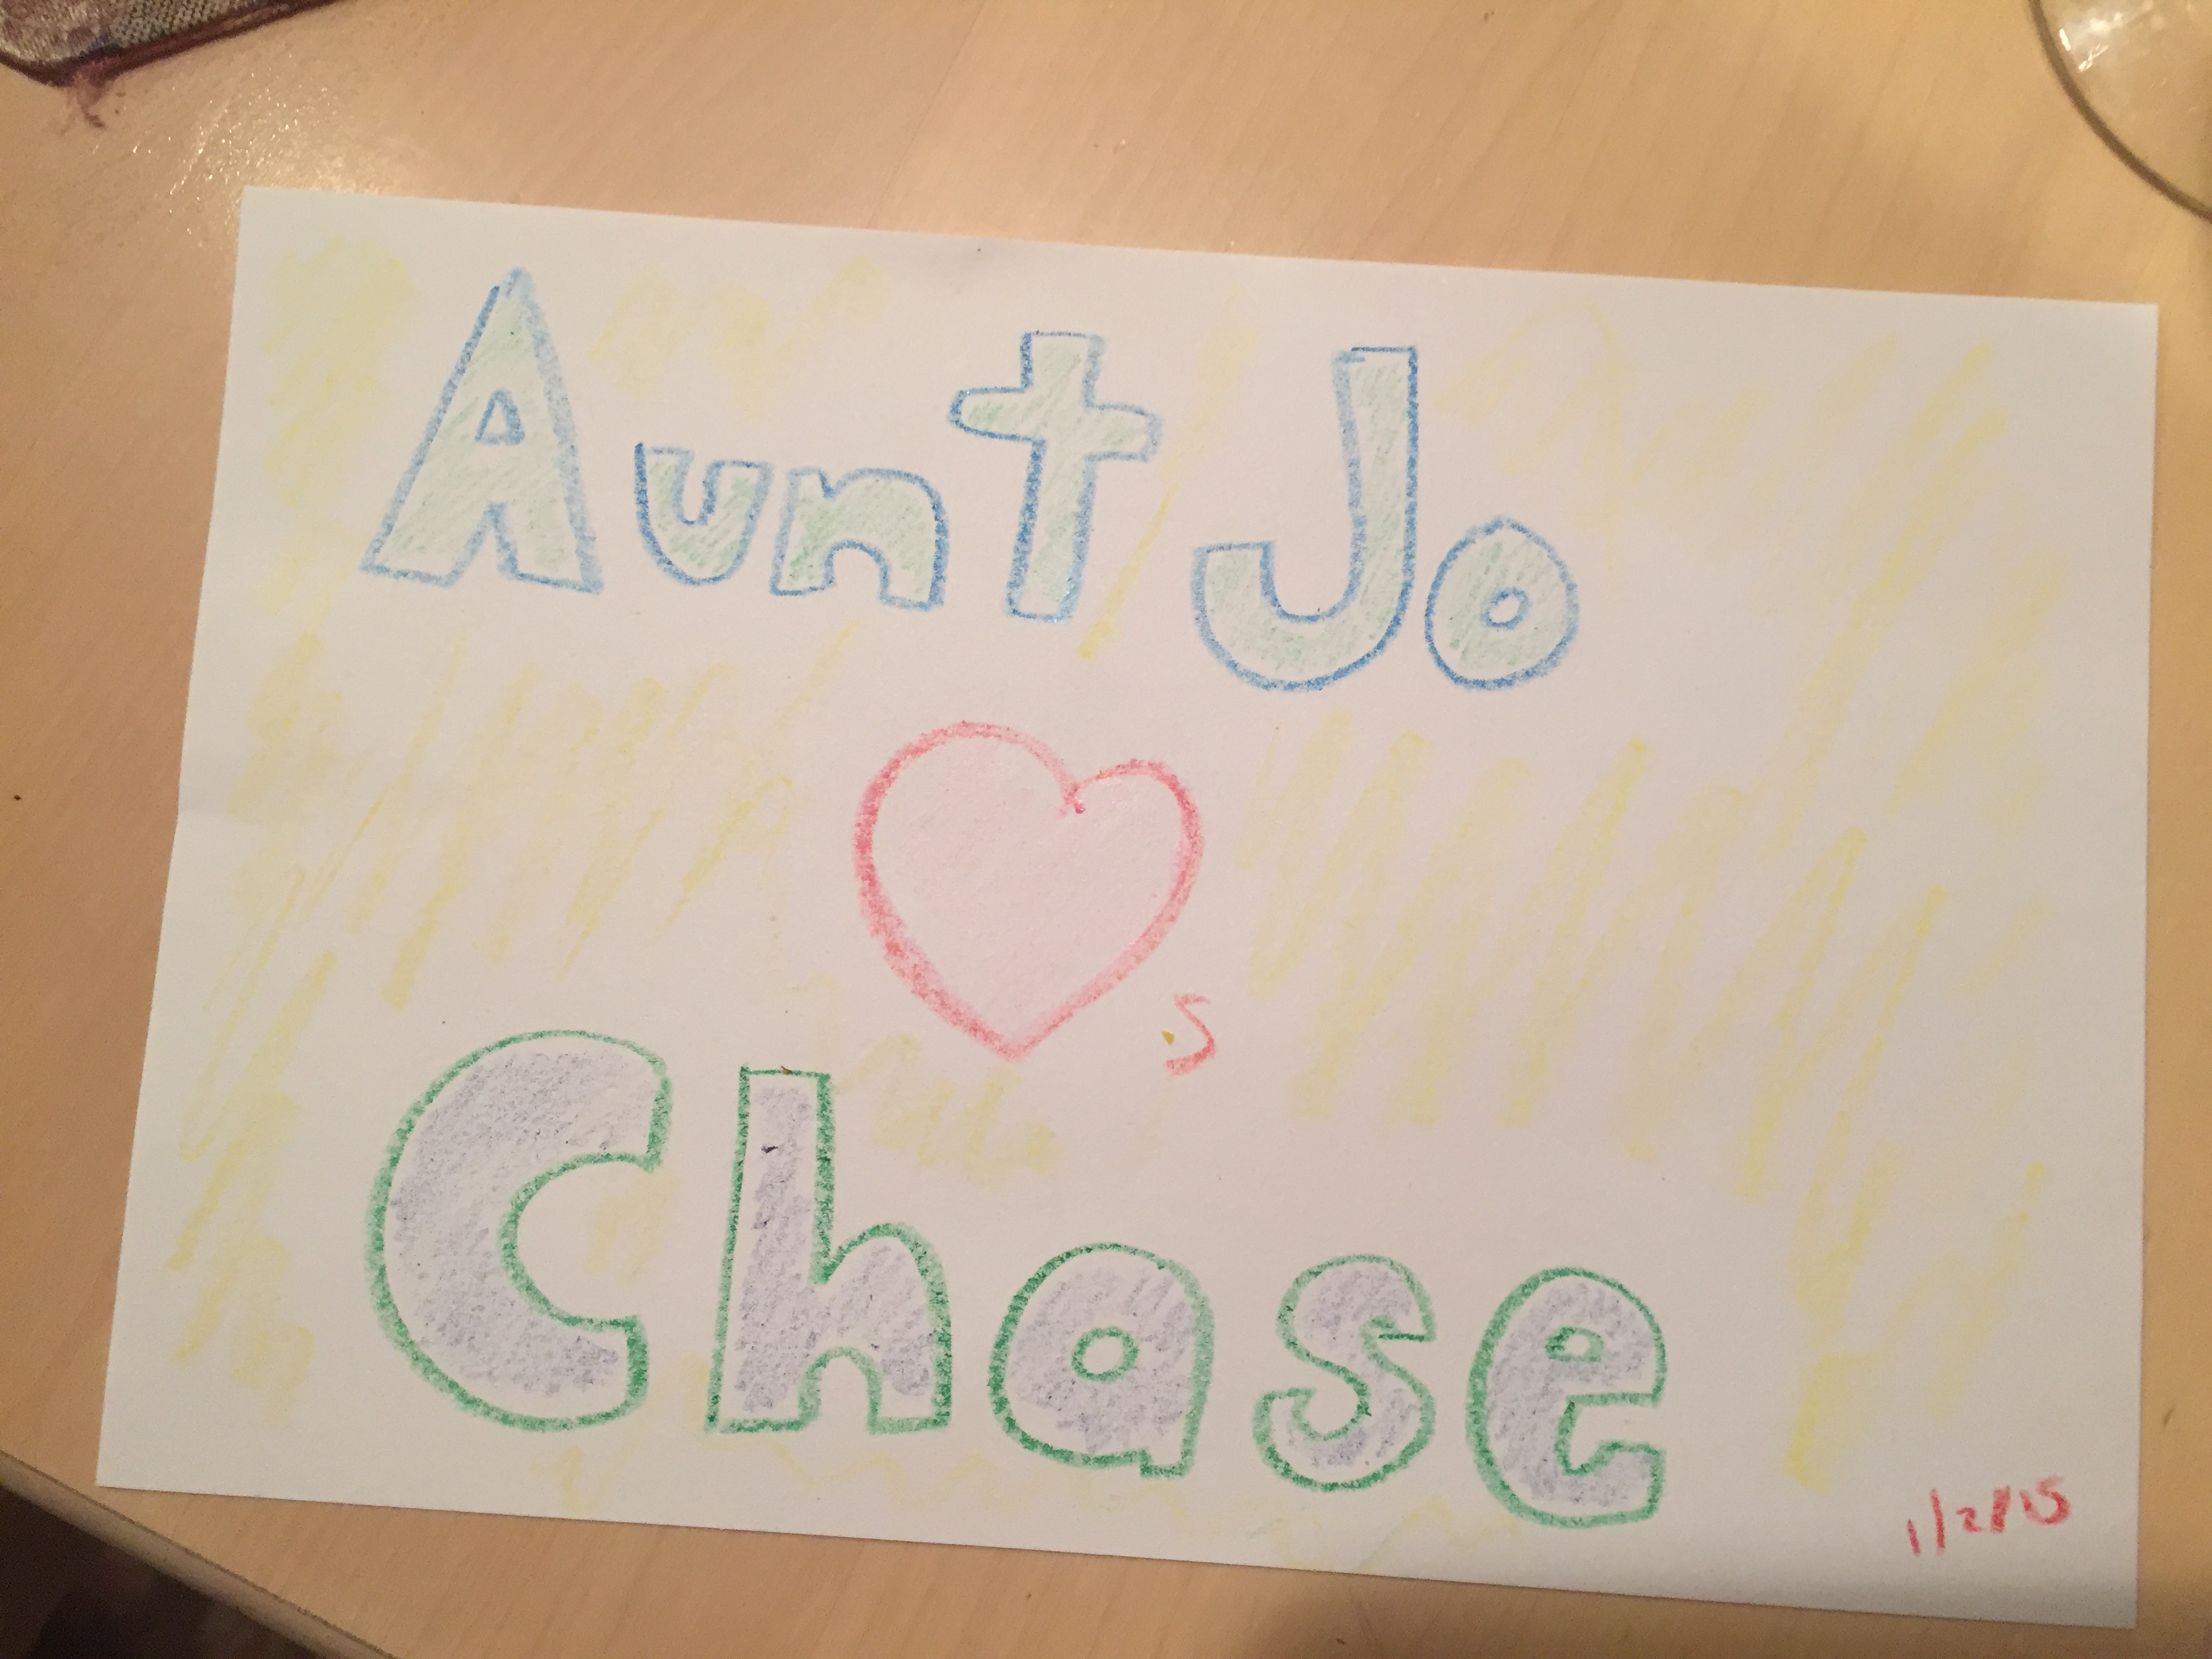 Aunt Jo
♥s
Chase
1/2/15